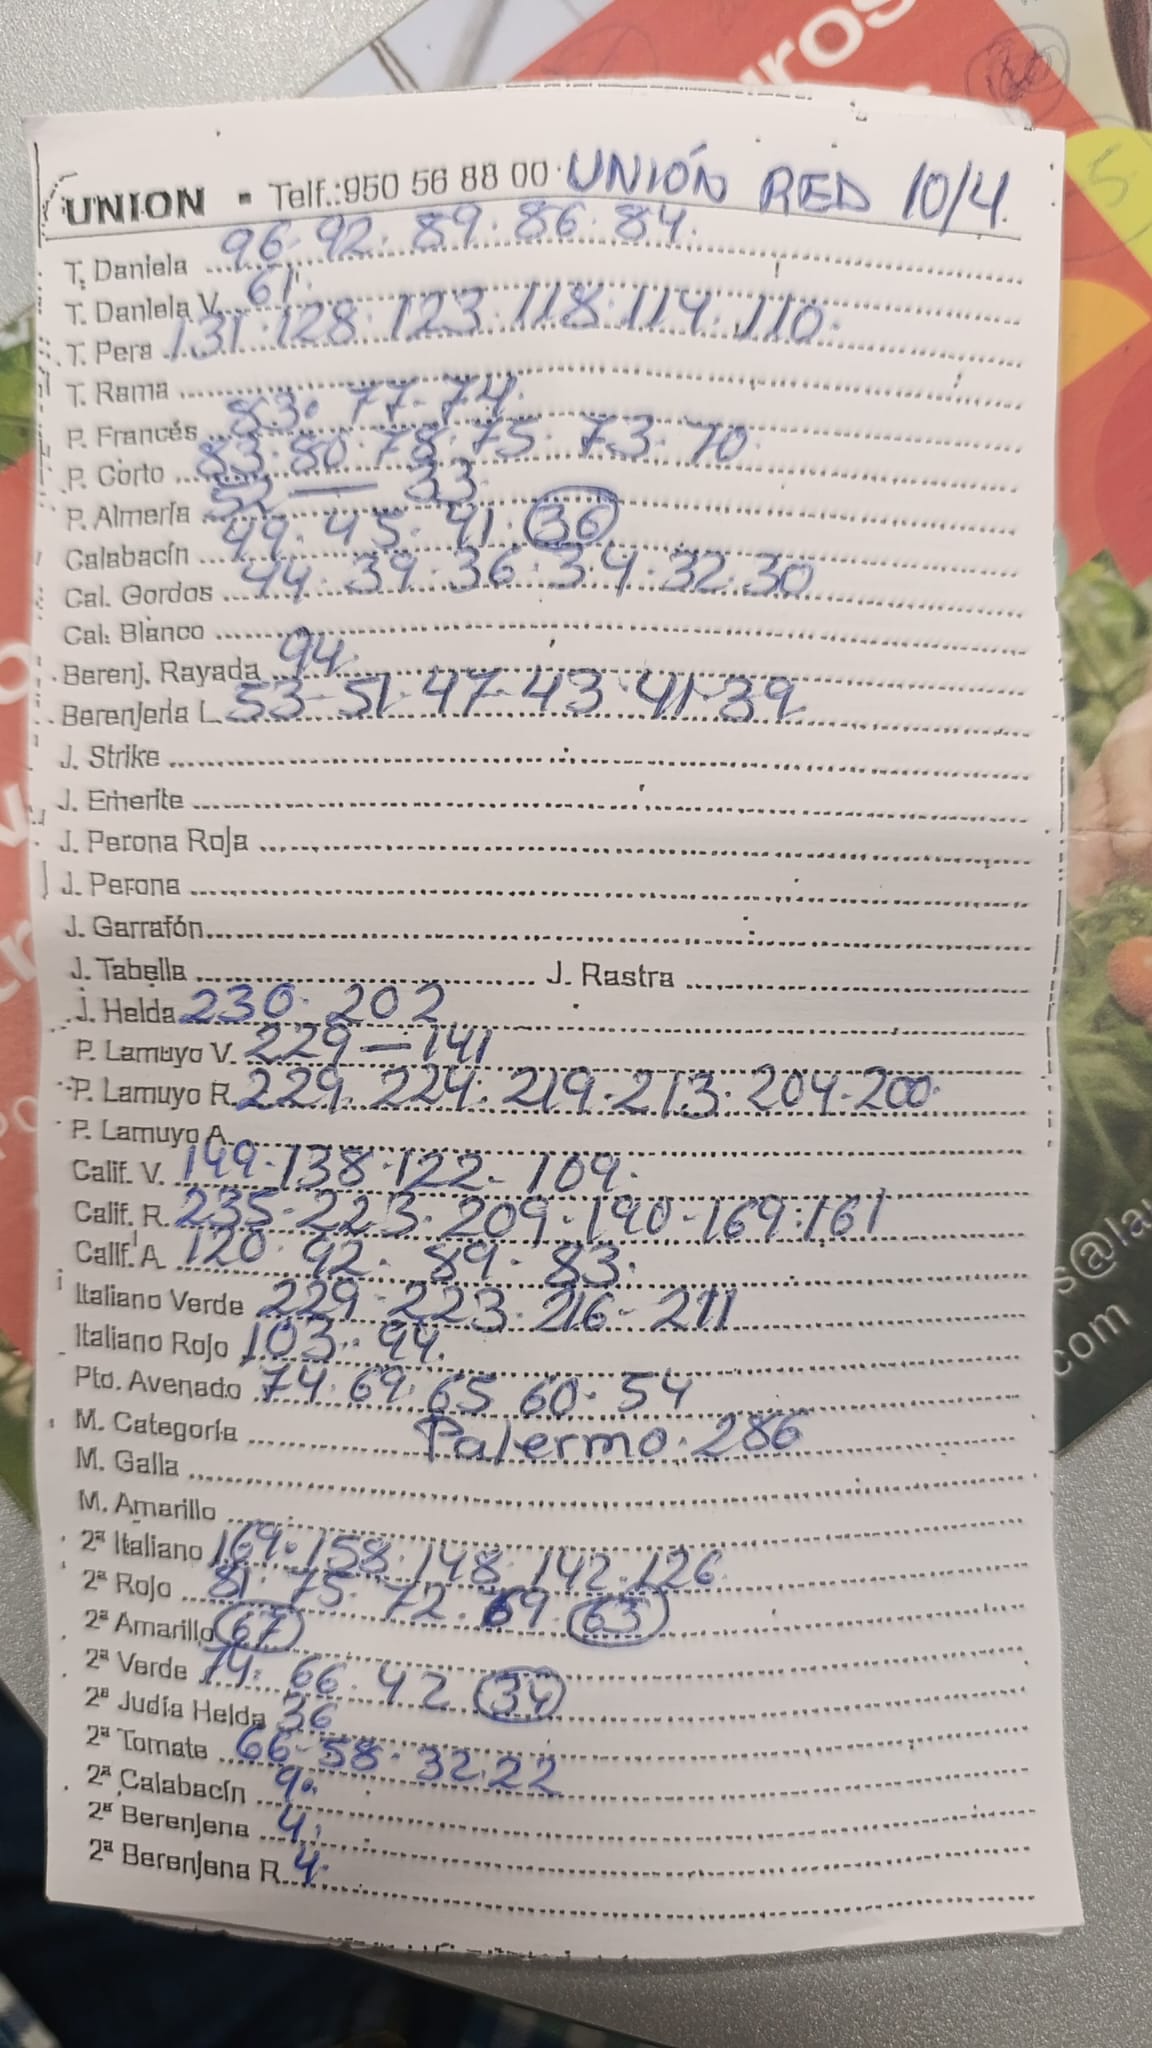 UNION - Telf.:950 56 88 00 · UNIÓN RED 10/4.
T. Daniela 96. 92. 89. 86. 84.
T. Daniela V. 61.
T. Pera 131. 128. 123. 118. 114. 110.
T. Rama
P. Francés 83. 77. 74.
P. Corto 83. 80. 78. 75. 73. 70.
P. Almería 52 — 33.
Calabacín 49. 45. 41. 36
Cal. Gordos 44. 39. 36. 34. 32. 30
Cal. Blanco
Berenj. Rayada 94.
Berenjena L. 53-51. 47. 43. 41. 39
J. Strike
J. Emerite
J. Perona Roja
J. Perona
J. Garrafón
J. Tabella J. Rastra
J. Helda 230. 202
P. Lamuyo V. 229 — 141
P. Lamuyo R. 229. 224. 219. 213. 204. 200.
P. Lamuyo A.
Calif. V. 149. 138. 122. 109.
Calif. R. 235. 223. 209. 190. 169. 161
Calif. A. 120. 92. 89. 83.
Italiano Verde 229. 223. 216. 211
Italiano Rojo 103. 94.
Pto. Avenado 74. 69. 65 60. 54
M. Categoría Palermo. 286
M. Galia
M. Amarillo
2ª Italiano 169. 158. 148. 142. 126.
2ª Rojo 81. 75. 72. 69. 63
2ª Amarillo 67
2ª Verde 74. 66. 42 34
2ª Judía Helda 36
2ª Tomate 66-58. 32. 22
2ª Calabacín 9.
2ª Berenjena 4.
2ª Berenjena R. 4.
uros
s@la
com
5